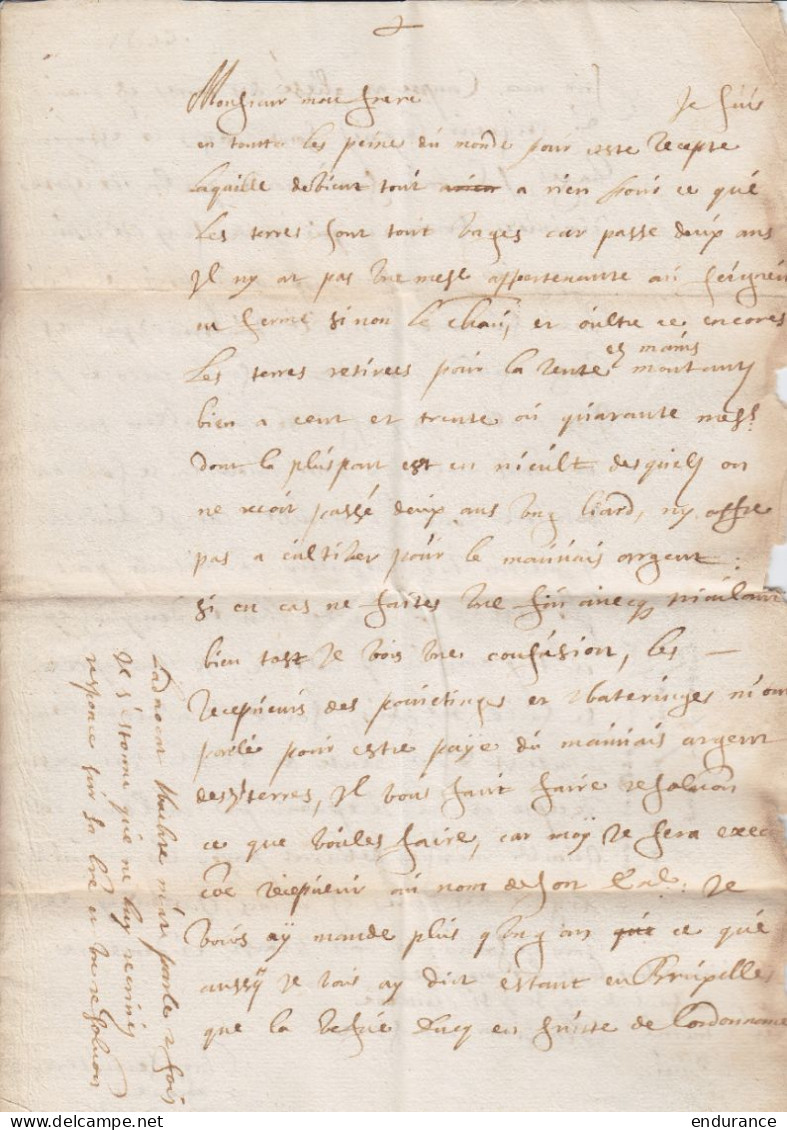 Monsieur mon frere Je suis
en toutte les peine du monde pour ceste recepte
laquelle devient tout a rien sur ce que
les terres sont tout vages car passe deux ans
Il ny at pas une mese appartenante au seigneu
sinon le et oultre ce encores
les terres retirees pour la rente es mains montant
bien a cent et trente ou quarante mess
dont la pluspart est en desquels on
ne recoit passé deux ans ung liard, ny
pas a cultiver pour le mauvais argent
si en cas ne faites une fin avecq
bien tost Je vois une confusion, les
recepveurs des et wateringes m'on
parlé pour estre paye du mauvais argent
des terres, Il vous faut faire resoluon
ce que voules faire, car moÿ Je sera exec
recepveur au nom de son Je
vous aÿ mande plus ce que
aussÿ Je vois ay dict estant en Bruxelles
que la en suitte de lordonnance
m'at parle 2 fois
Je s'estonne que ne luy
responce sur sa lre et vre resoluon
endurance